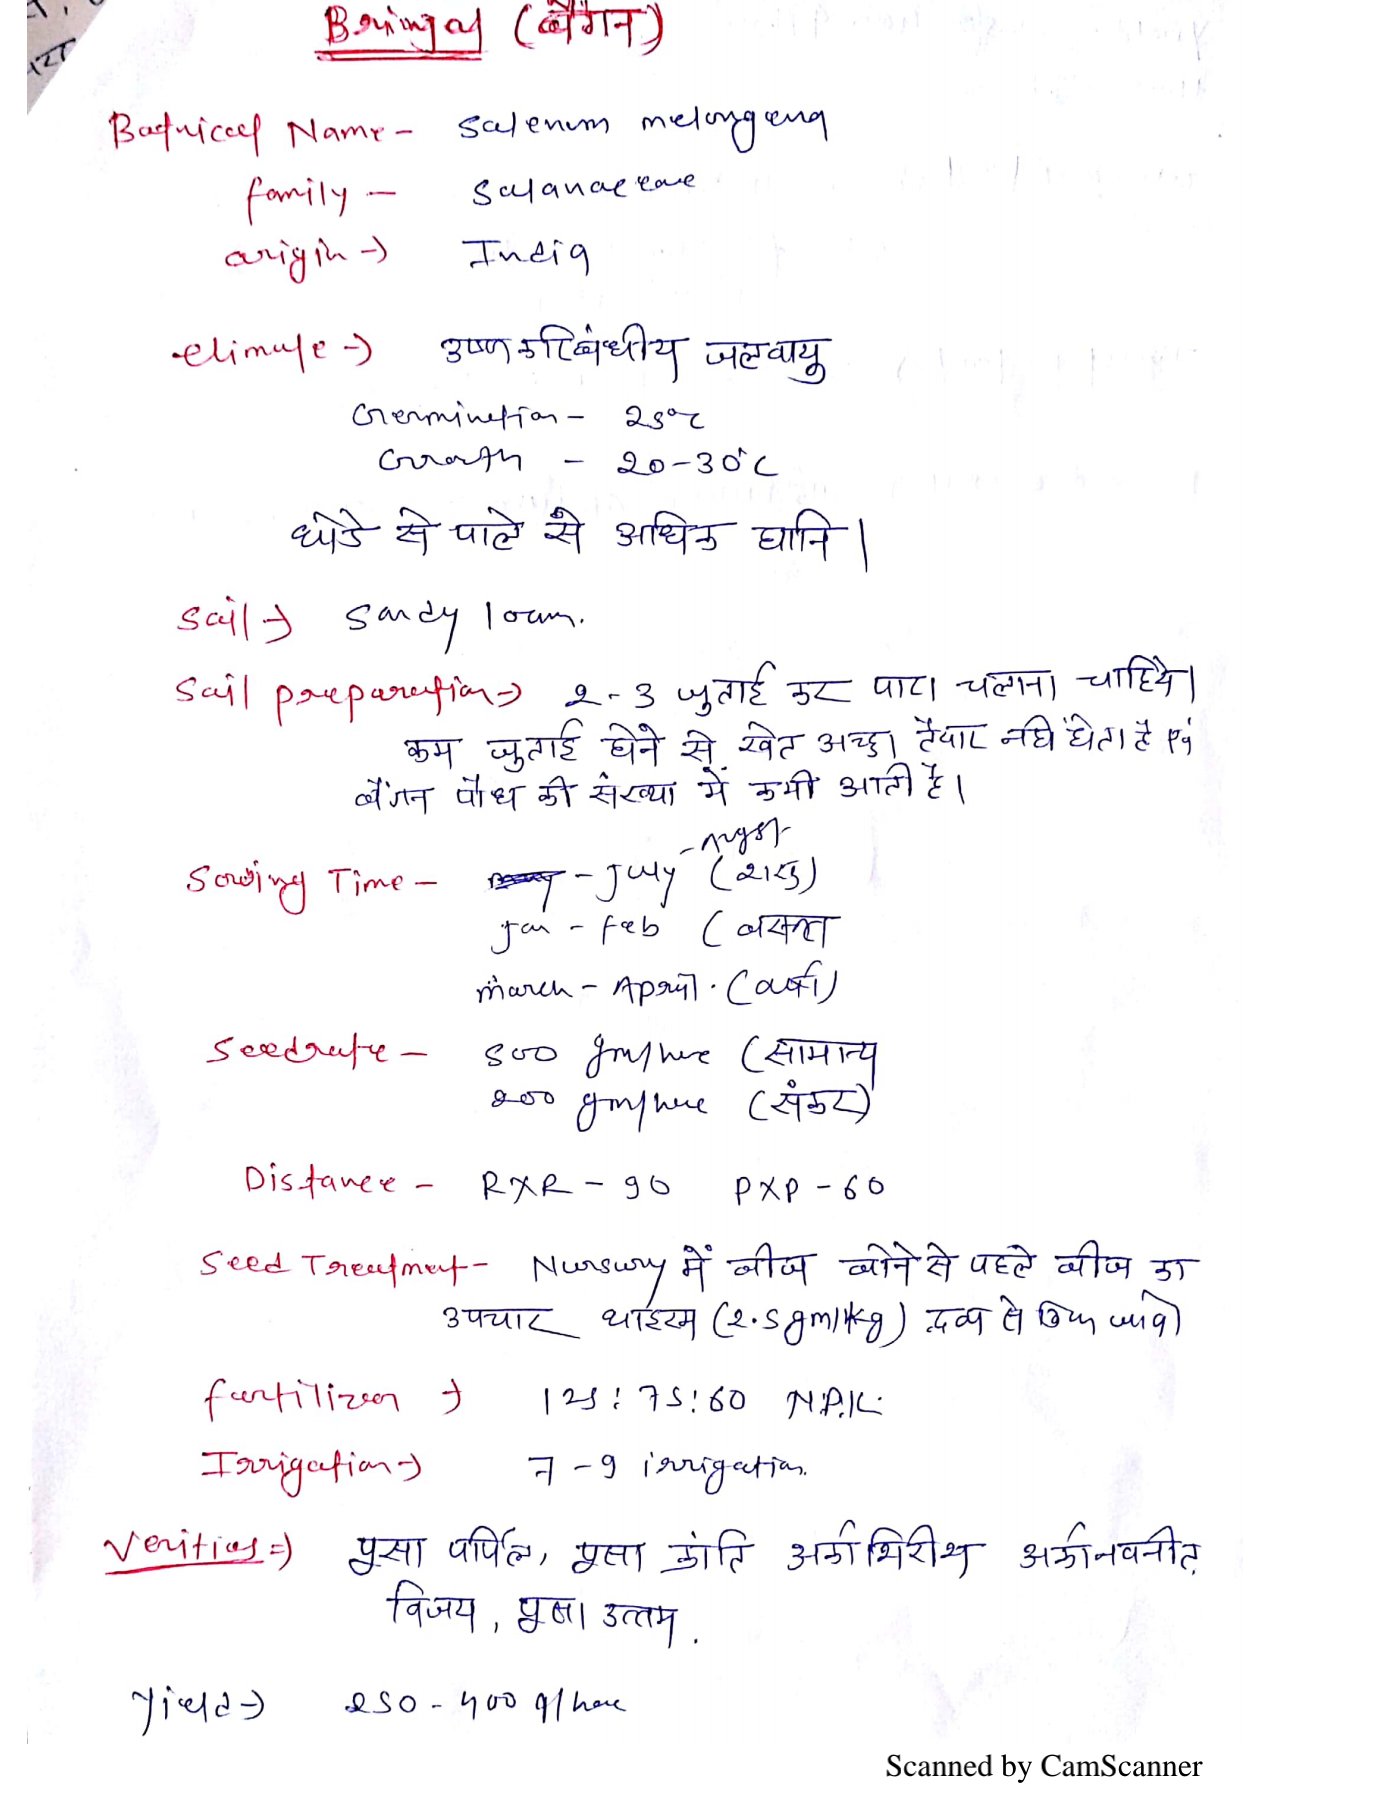 Bringal (बैंगन)
Batnical Name - Salenum melongena
family - Salanaceae
origin → India
climate → उष्ण कटिबंधीय जलवायु
Germination - 25°C
Growth - 20-30°C
थोडे से पाले से अधिक हानि।
Soil → Sandy loam.
Soil preparation → 2-3 जुताई कर पाटा चलाना चाहिये।
कम जुताई होने से खेत अच्छा तैयार नही होता है एवं
बैंगन पौध की संख्या में कमी आती है।
- Augst
Sowing Time - - July (शरद)
Jan - feb (बसन्त
march - April. (वर्षा)
Seedrate - 500 gm/hec (सामान्य
200 gm/hec (संकर)
Distance - RXR - 90 PXP - 60
Seed Treatment - Nursury में बीज बोने से पहले बीज का
उपचार थाइरम (2.5 gm/kg) द्रव्य से किया जावे
fertilizer → 125:75:60 N.P.K.
Irrigation → 7-9 irrigation.
Verities ⇒ पूसा पर्पिल, पूसा क्रांति अर्का शिरीष अर्का नवनीत,
विजय, पूसा उत्तम.
Yield → 250-400 q/hec
Scanned by CamScanner